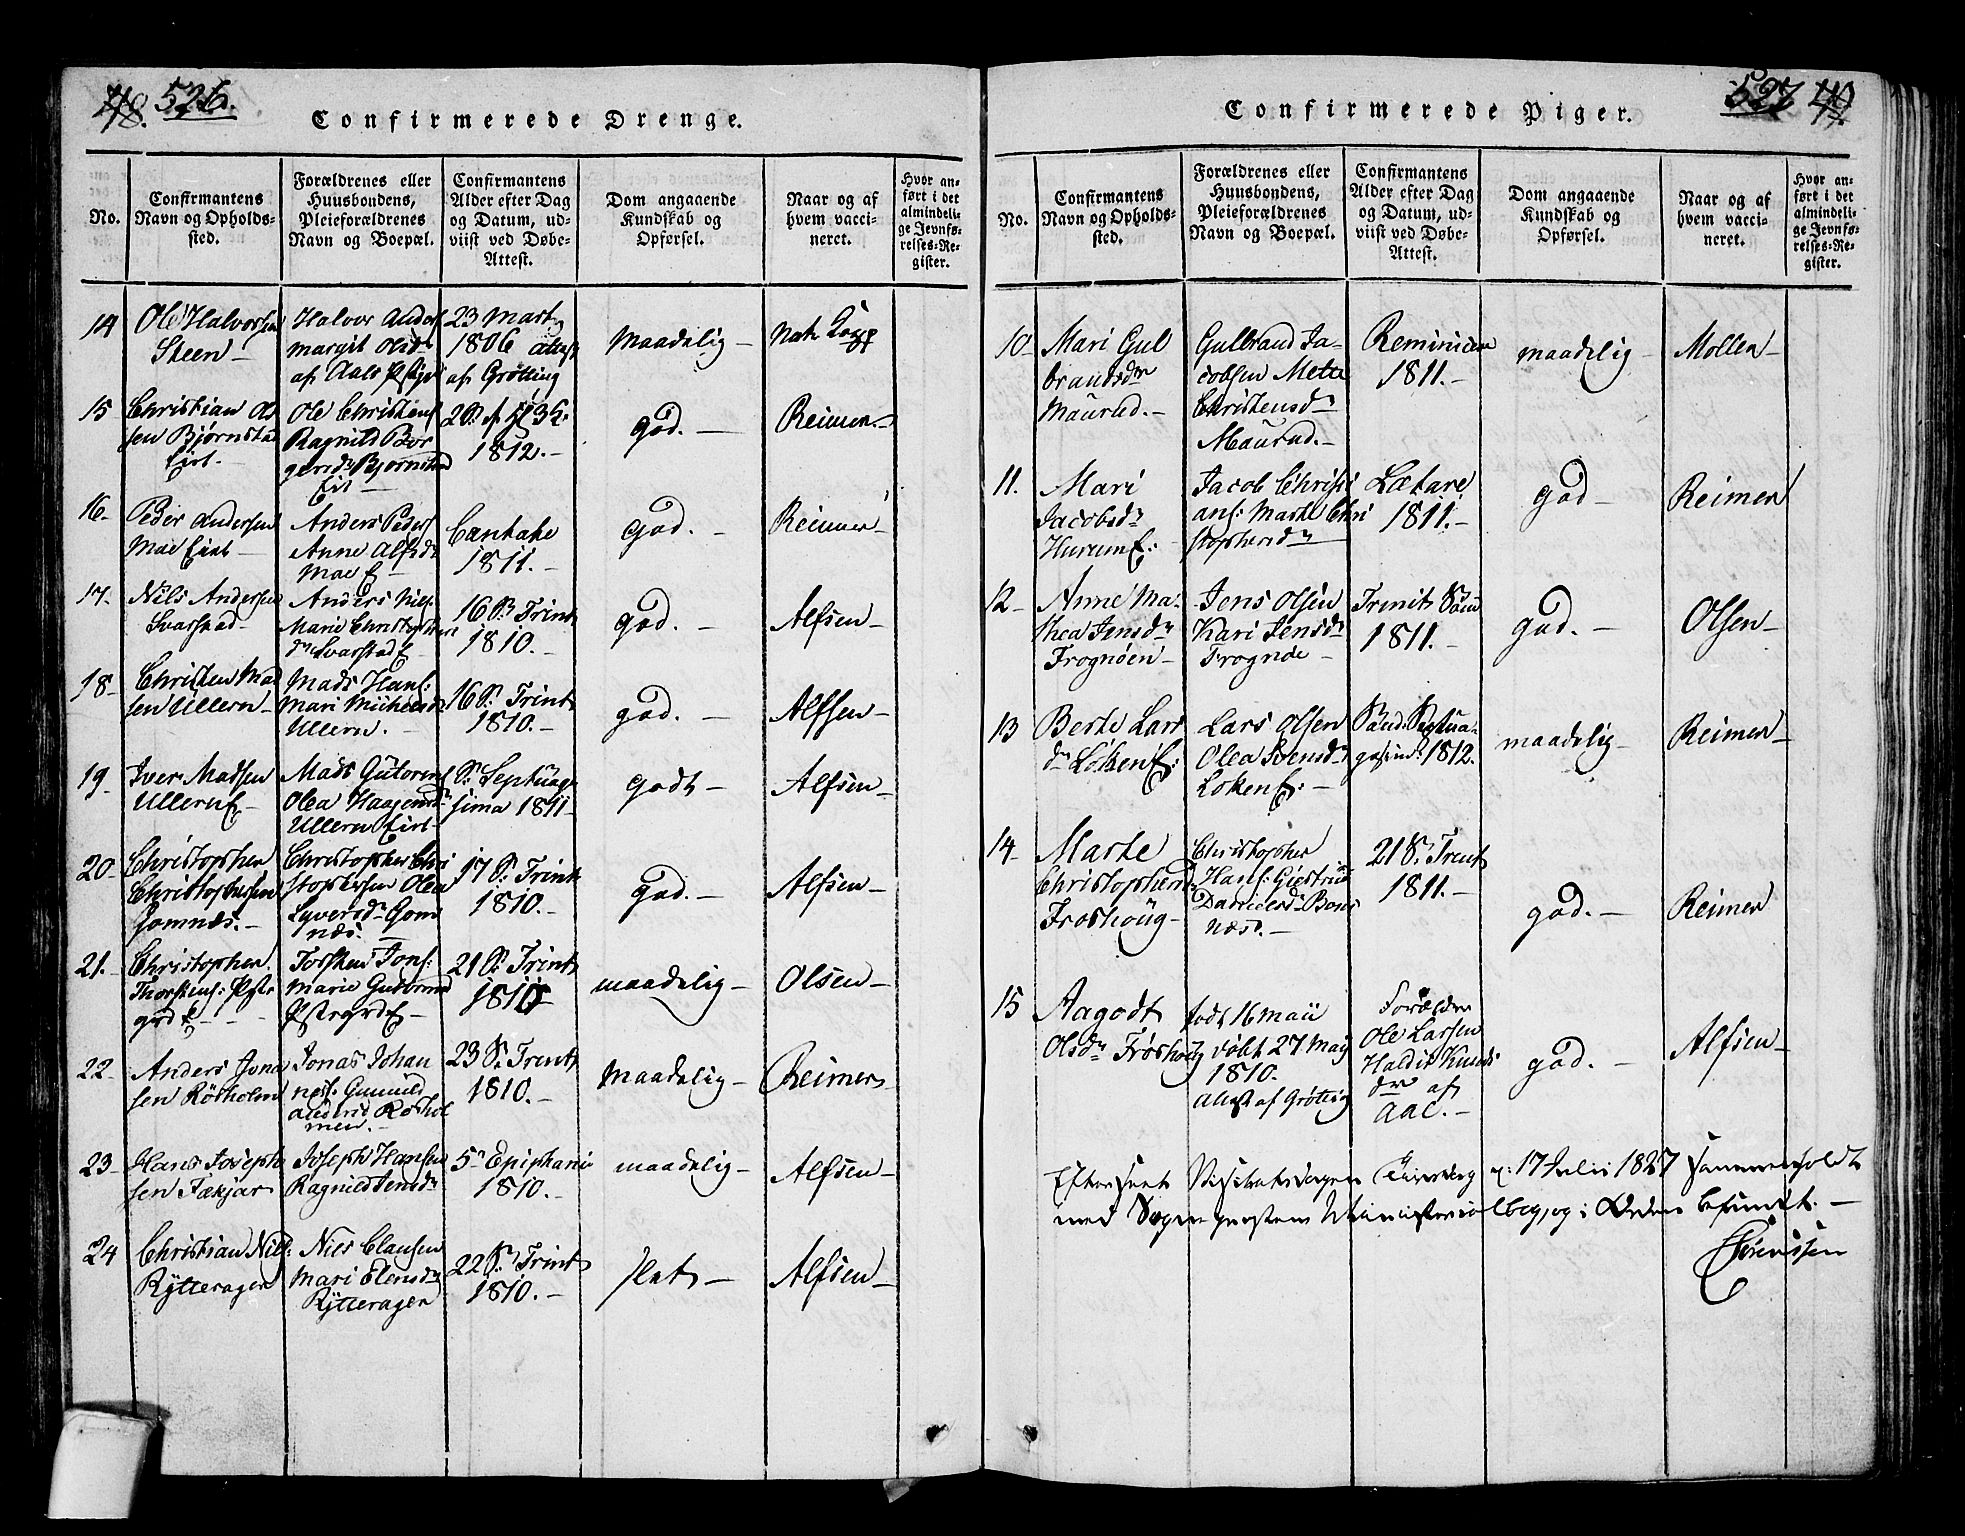 48. 526.
Confirmerede Drenge.
No.
Confirmantens
Navn og Opholds-
sted.
Forældrenes eller
Huusbondens,
Pleieforældrenes
Navn og Boepæl.
Confirmantens
Alder efter Dag
og Datum, ud-
viist ved Døbe-
Attest.
Dom angaaende
Kundskab og
Opførsel.
Naar og af
hvem vacci-
neret.
Hvor an-
ført i det
almindeli-
ge Jevnfø-
relses-Re-
gister.
14
Ole Halvorsen
Steen -
Halvor Anders
Margit Olsdr
af Aals
23 Marty
1806 attest
af Grøtting
maadelig -
Nat. Kopp
15
Christian Ol
sen Bjørnstad
Eiel. -
Ole Christens
Ragnild Bør
gersdr Bjørnstad
Eie -
1812. -
god. -
Reimer -
16 -
Peder Andersen
Moe Eiel -
Anders Peders
Anne Alfsdr
Moe E -
Cantate
1811. -
god. -
Reimer -
17 -
Nils Andersen
Svarstad -
Anders Niels
Marie Christophers
dr Svarstad E -
16 S. Trinit
1810. -
god. -
Alfsen -
18 -
Christen Mad
sen Ullern -
Mads Hans:
Mari Michelsdr
Ullern. -
16 S. Trinit
1810. -
god. -
Alfsen -
19 -
Iver Madsen
Ullern E -
Mads Gutorms
Olea Haagensdr
Ullern Eiel -
S. Septuage
sima 1811 -
godt -
Alfsen -
20
Christopher
Christophersen
Gomnæs. -
Christopher Chri
stophersen Olea
Syversdr Gom
næs. -
17 S. Trinit
1810. -
god. -
Alfsen -
21. -
Christopher
Thorstens:
grd E -
Torsten Jons:
Marie Gulbrand
21 S. Trinit
1810
maadelig -
Olsen -
22 -
Anders Jona
sen Rösholm
Jonas Johan
nes: Gunnild
Andersd Röshol
men. -
23 S. Trinit
1810. -
maadelig -
Reimer -
23 -
Hans Joseph
sen Fækjær
Joseph Hansen
Ragnild Jensdr
5n Epiphani
1810. -
maadelig -
Alfsen -
24
Christian Niels:
Rÿtteragen
Niels Clausen
Mari Elensdr
Rÿtteragen
22 S. Trinit
1810. -
slet -
Alfsen -
527 49
Confirmerede Piger.
No.
Confirmantens
Navn og Opholds-
sted.
Forældrenes eller
Huusbondens,
Pleieforældrenes
Navn og Boepæl.
Confirmantens
Alder efter Dag
og Datum, ud-
viist ved Døbe-
Attest.
Dom angaaende
Kundskab og
Opførsel.
Naar og af
hvem vacci-
neret.
Hvor an-
ført i det
almindeli-
ge Jevnfø-
relses-Re-
gister.
10 -
Mari Gul
brandsdr
Maurud. -
Gulbrand Ja-
cobsen Mette
Christensdr
Maurud. -
Reminicere
1811. -
maadelig -
Moller -
11.
Mari
Jacobsdr
Hurum E:
Jacob Christi
ans: Marte Chri
stophersdr
Lætare
1811. -
god -
Reimer
12 -
Anne Ma-
thea Jensdr
Frognöen -
Jens Olsen
Kari Jensdr
Frognöe -
Trinit Sönd
1811. -
god. -
Olsen -
13
Berte Lars
dr Löken E:
Lars Olsen
Olea Svensdr
Löken E: -
Sönd. Septua-
gesima 1812.
maadelig -
Reimer -
14 -
Marte
Christophersdr
Froshöug -
Christopher
Hans: Giestrud
Danielsdr Bons
næs. -
21 S. Trinit
1811. -
god. -
Reimer
15
Aagodt
Olsdr Fröshoug
født 16 Maii
döbt 27 Maij
1810.
Attest af Grötting
Forældre
Ole Larsen
Haldis Knuds
dr af
Aal. -
god. -
Alfsen -
Efterseet Visitatsdagen d: 17 Julii 1827 sammenholdt
med Sognepræstens Ministerialbog, og i Orden befundet. -
Sörenssen